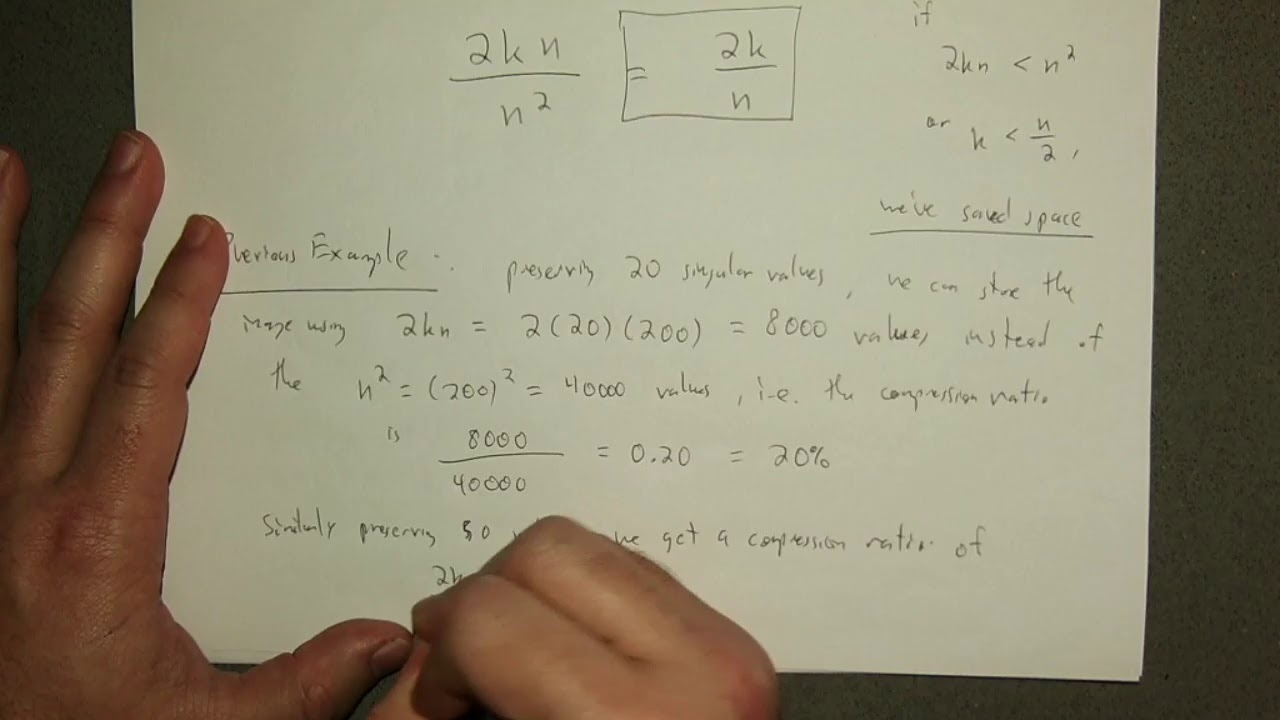 2kn / n² = 2k / n
if
2kn < n²
or k < n/2,
we've saved space
Previous Example: preserving 20 singular values, we can store the
image using 2kn = 2(20)(200) = 8000 values instead of
the n² = (200)² = 40000 values, i.e. the compression ratio
is 8000 / 40000 = 0.20 = 20%
Similarly preserving 50 we get a compression ratio of
2k